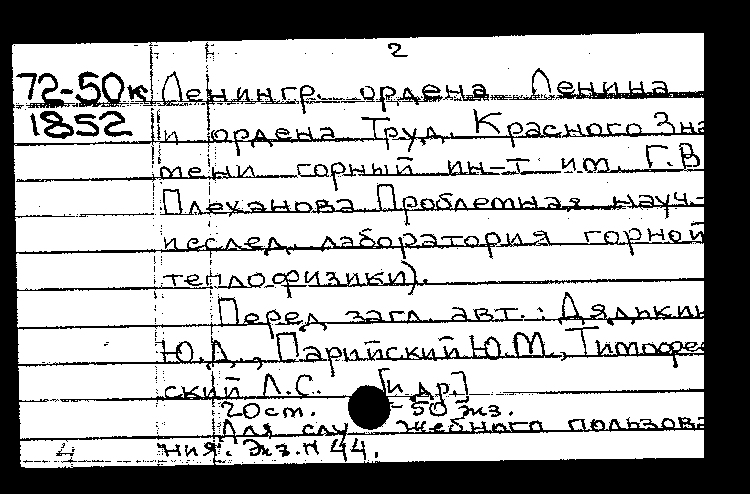 2
72-50к Ленингр. ордена Ленина
1852 и ордена Труд. Красного Зна
мени горный ин-т им. Г.В
Плеханова Проблемная науч-
исслед. лаборатория горной
теплофизики).
Перед загл. авт.: Дядькин
Ю.Д., Парийский Ю.М., Тимофе
ский Л.С. [и др.]
20см. - 50 экз.
Для служебного пользова
4 ния. Экз.N 44.